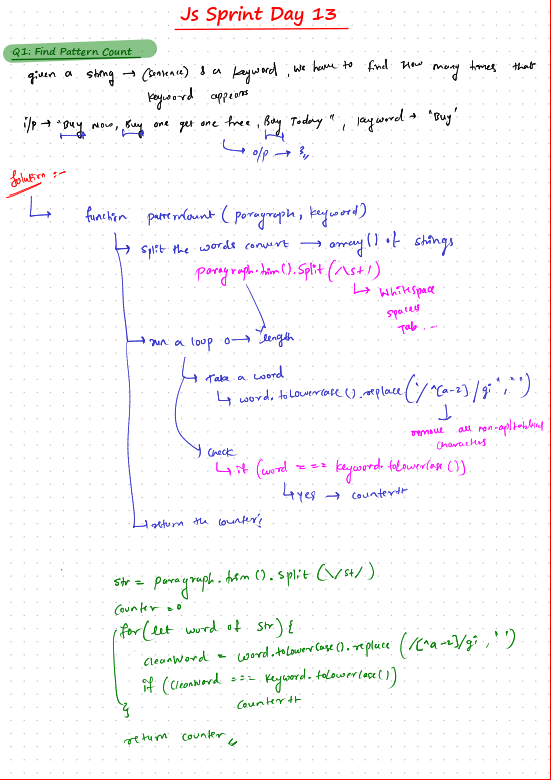 Js Sprint Day 13
Q1: Find Pattern Count
given a string → (sentence) & a keyword, we have to find How many times that
keyword appears
i/p → "Buy Now, Buy one get one free, Buy Today", keyword → "Buy"
o/p → 3,,
Solution :-
function patternCount (paragraph, keyword)
split the words convert → array[] of strings
paragraph.trim().split(/\s+/)
Whitespace
spaces
Tab ...
run a loop 0 → length
Take a word
word.toLowercase().replace('/^[a-z]/gi', '')
remove all non-aplhabetical
characters
Check
if (word === keyword.toLowerCase())
yes → counter++
return the counter;
str = paragraph.trim().split(\/s+/)
counter = 0
for(let word of str) {
cleanWord = word.toLowerCase().replace(/[^a-z]/gi, '')
if (cleanWord === keyword.toLowerCase()
counter++
}
return counter,,